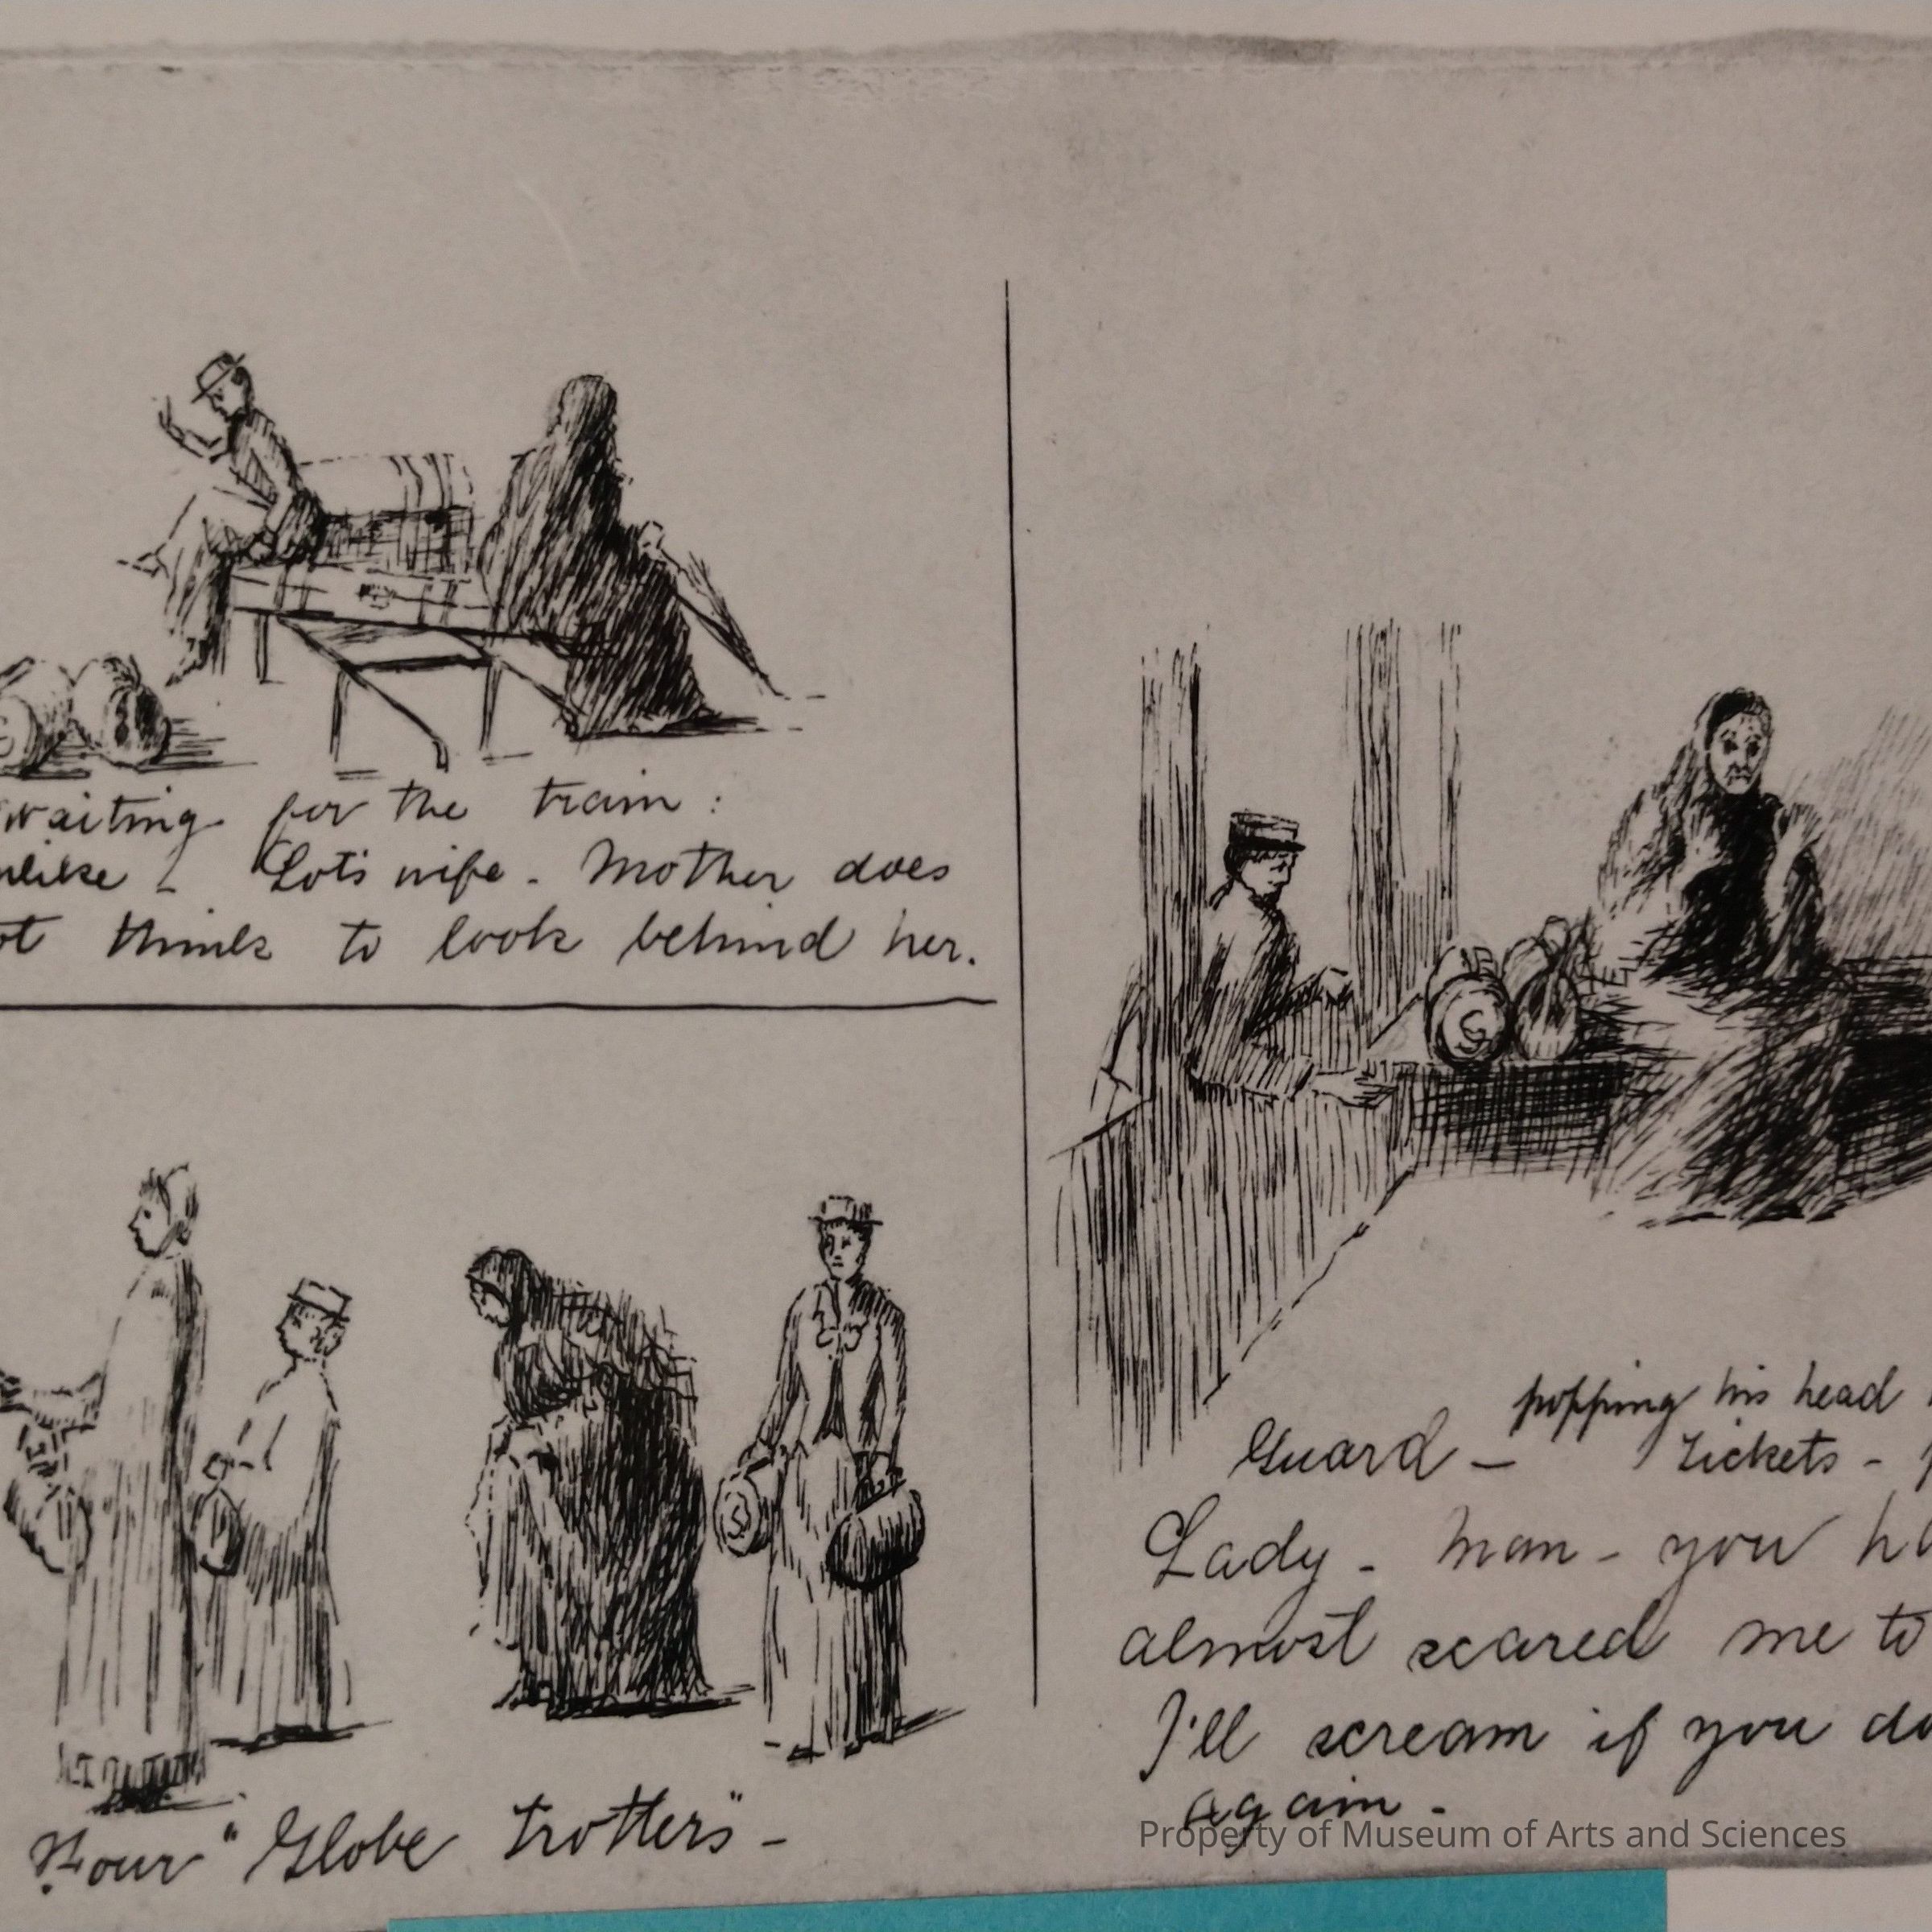 waiting for the train:
unlike - Lot's wife - Mother does
not think to look behind her.
Four "Globe trotters" -
popping his head
Guard - Tickets -
Lady - Man - you
almost scared me to
I'll scream if you do
again -
Property of Museum of Arts and Sciences